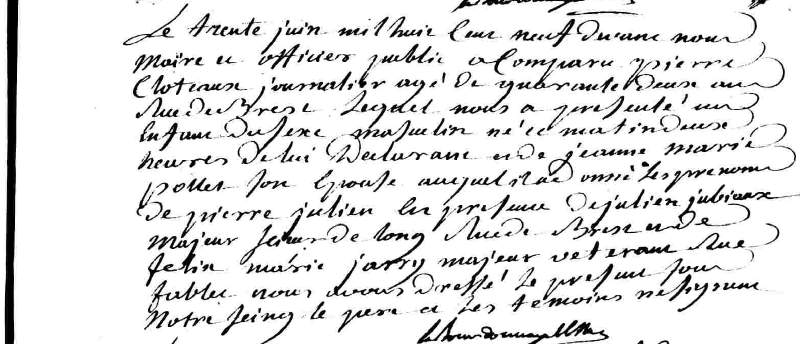 Le trente juin mil huit Cent neuf devant nous
Maire et officier public a Comparu pierre
Cloteaux journalier agé de quarante deux ans
Rue de Brest Lequel nous a presenté un
Enfant du sexe masculin né ce matin deux
heures de lui Declarant et de jeanne marie
pollet son Epouse auquel il a donné les prenoms
De pierre julien En presence de julien jubieaux
Majeur scieur de long Rue de Brest et de
felix marie jarry majeur veterant Rue
nous avons dressé le present sous
Notre seing le pere et les temoins ne signant